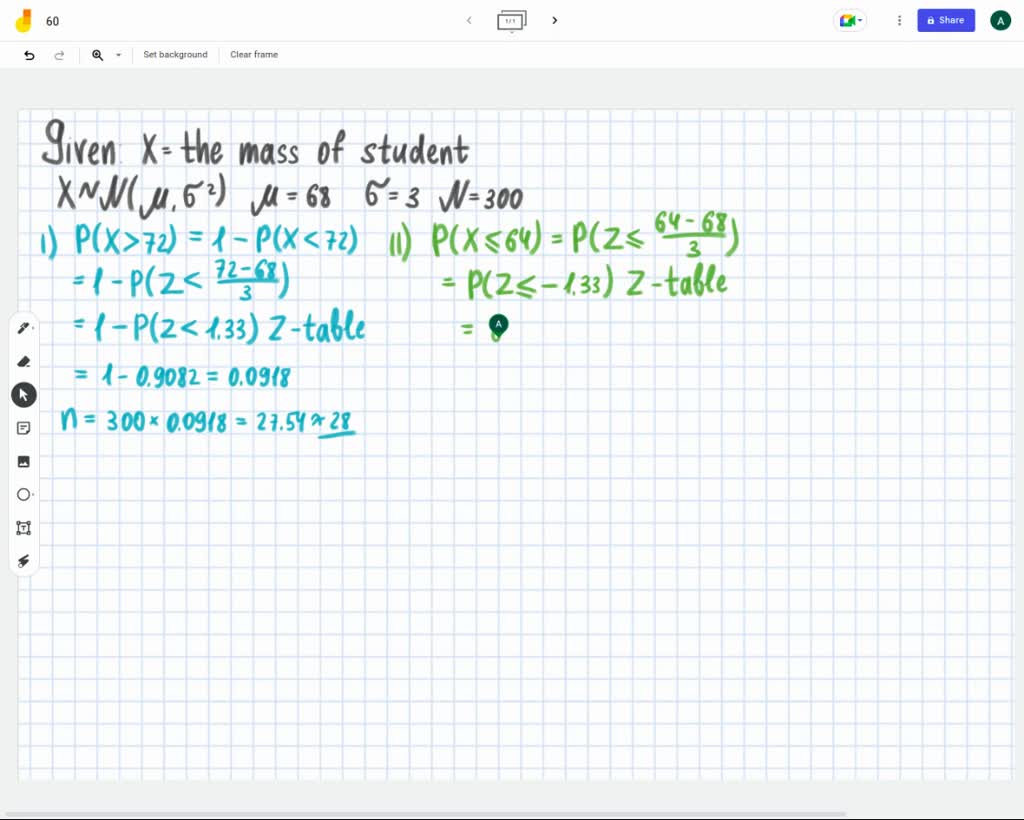 60
1/1
Share
A
Set background
Clear frame
Given: X = the mass of student
X ~ N(μ, σ²) μ = 68 σ = 3 N = 300
i) P(X > 72) = 1 - P(X < 72)
= 1 - P(Z < (72 - 68)/3)
= 1 - P(Z < 1.33) Z-table
= 1 - 0.9082 = 0.0918
n = 300 × 0.0918 = 27.54 ≈ 28
ii) P(X ⩽ 64) = P(Z ⩽ (64 - 68)/3)
= P(Z ⩽ -1.33) Z-table
=
A